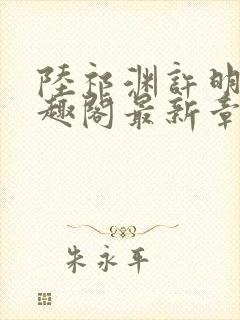 陸祁渊許明
趣閣最新章
朱永平